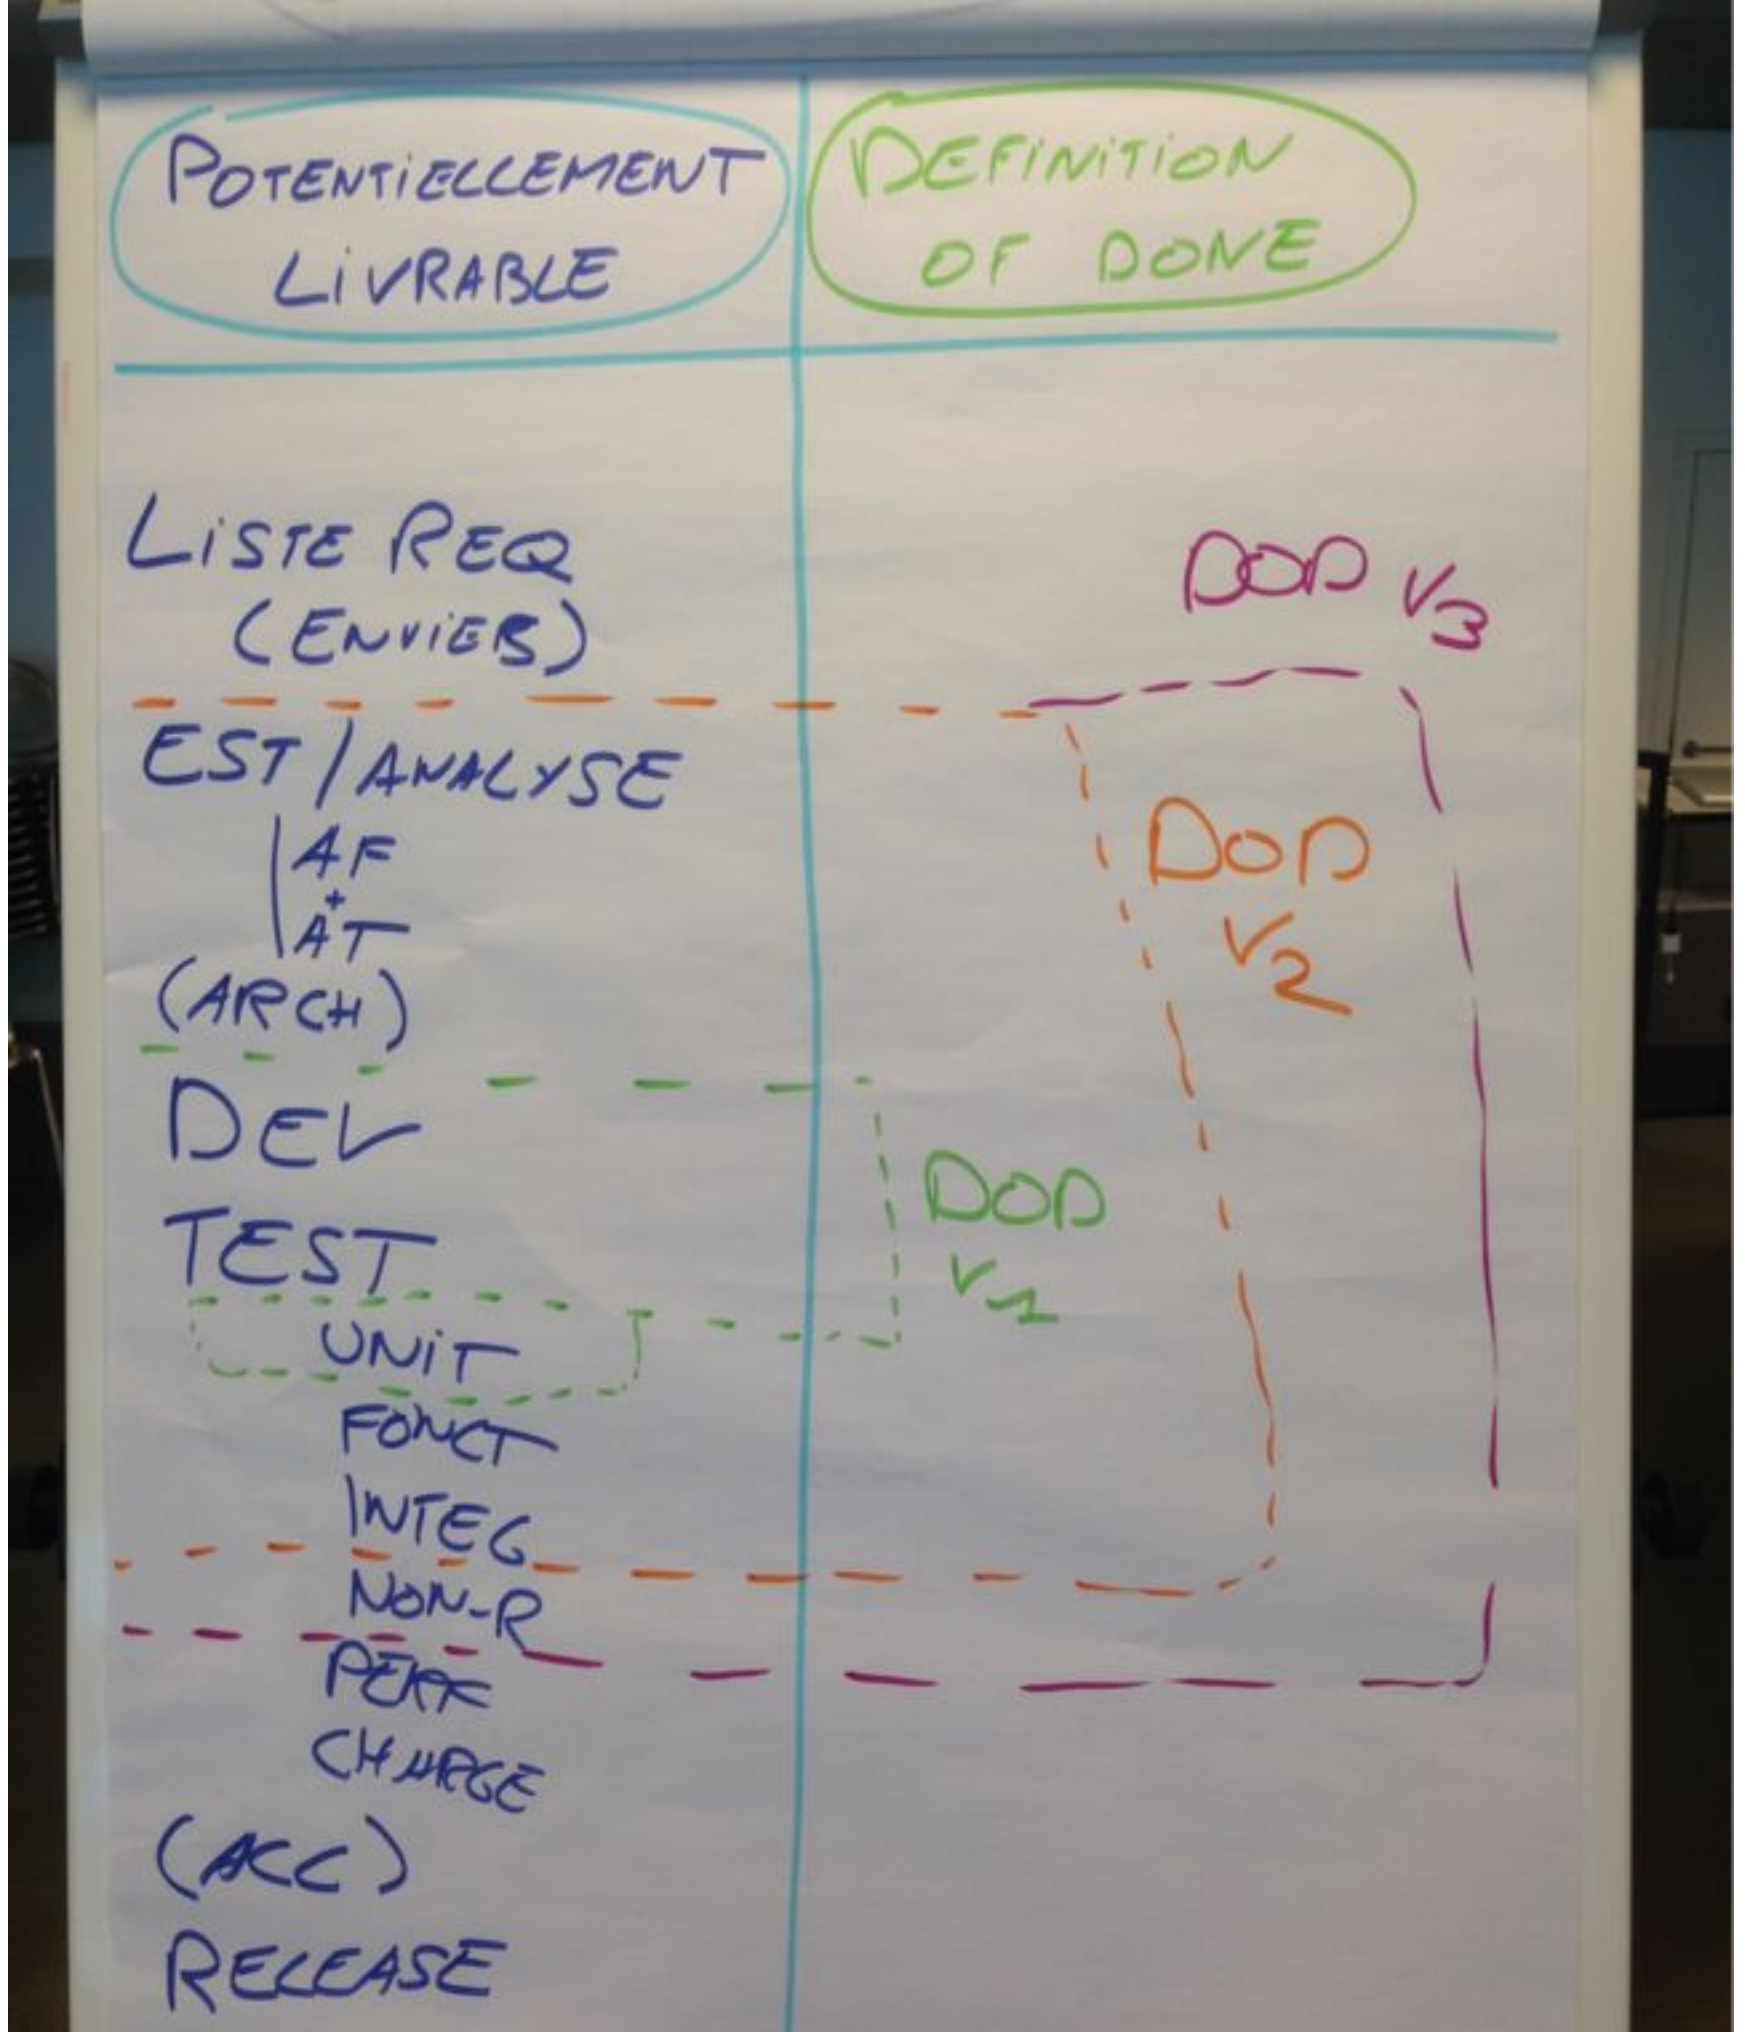 POTENTIELLEMENT
LIVRABLE
DEFINITION
OF DONE
LISTE REQ
(ENVIES)
EST / ANALYSE
AF
+
AT
(ARCH)
DEV
TEST
UNIT
FONCT
INTEG
NON-R
PERF
CHARGE
(ACC)
RELEASE
DOD V3
DOD
V2
DOD
V1